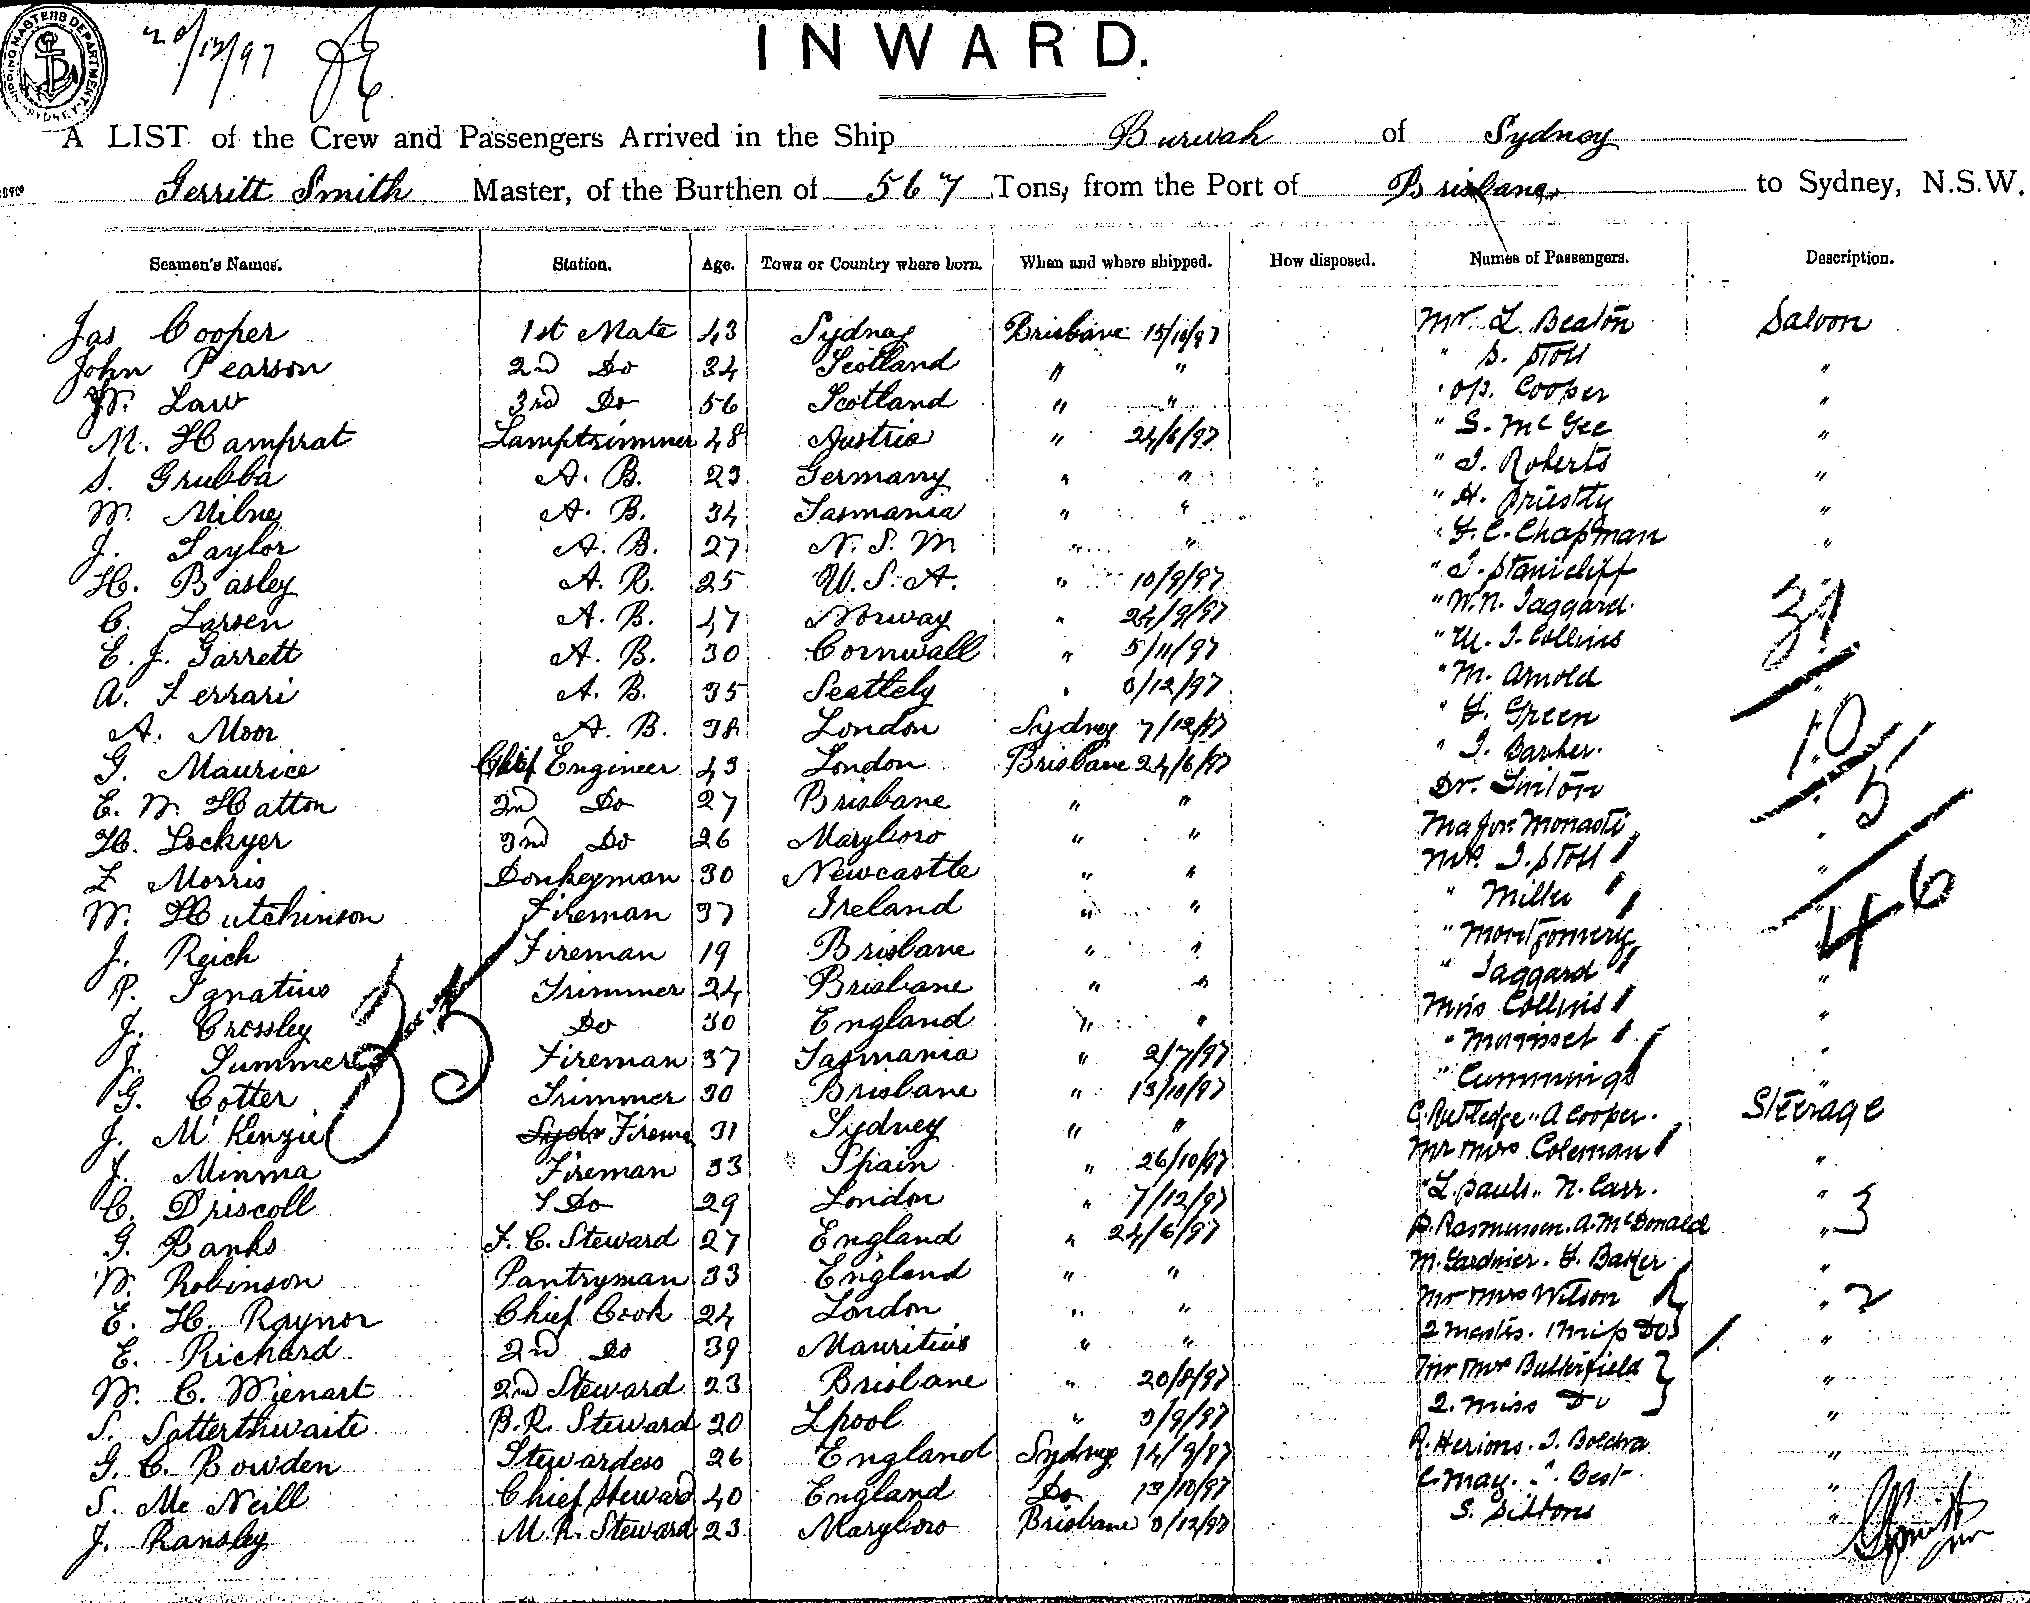 SHIPPING MASTERS DEPARTMENT SYDNEY
20/12/97
INWARD.
A LIST of the Crew and Passengers Arrived in the Ship Burwah of Sydney
Gerritt Smith Master, of the Burthen of 567 Tons, from the Port of Brisbane to Sydney, N.S.W.
Seamen's Names. Station. Age. Town or Country where born. When and where shipped. How disposed. Names of Passengers. Description.
Jas Cooper 1st Mate 43 Sydney Brisbane 15/10/97 Mr L. Beaton Saloon
John Pearson 2nd Do 34 Scotland " " " S. Stoll "
W. Law 3rd Do 56 Scotland " " " Cooper "
M. Hamprat Lamptrimmer 48 Austria " 24/6/97 " S. McGee "
S. Grubba A. B. 23 Germany " " " J. Roberts "
W. Milne A. B. 34 Tasmania " " " H. Priestly "
J. Taylor A. B. 27 N. S. W " " " F. C. Chapman "
H. Basley A. B. 25 U. S. A. " 10/9/97 " J. Stanicliff "
C. Larsen A. B. 47 Norway " 24/9/97 " W. N. Jaggard. 31
E. J. Garrett A. B. 30 Cornwall " 5/11/97 " W. J. Collins
A. Ferrari A. B. 35 " /12/97 " M. Arnold "
A. Moor A. B. 38 London Sydney 7/12/97 " F. Green 10
G. Maurice Chief Engineer 43 London Brisbane 24/6/97 " J. Barker.
E. W. Hatton 2nd Do 27 Brisbane " " Dr. Linton " 5
H. Lockyer 3rd Do 26 Maryboro " " Major Monasti "
L Morris Donkeyman 30 Newcastle " " Mrs. J. Stoll "
W. Hutchinson Fireman 37 Ireland " " " Miller 46
J. Reich Fireman 19 Brisbane " " " Montgomery
P. Ignatius Trimmer 24 Brisbane " " " Jaggard "
J. Crossley Do 30 England " " Miss Collins "
J. Summer Fireman 37 Tasmania " 2/7/97 " Morisset "
G. Cotter Trimmer 30 Brisbane " 13/10/97 " Cummings "
J. McKenzie Fireman 31 Sydney " " C. Rutledge " A Cooper. Steerage
J. Minma Fireman 33 Spain " 26/10/97 Mr Mrs Coleman "
C. Driscoll Do 29 London " 7/12/97 " L. Pauls " N. Carr. " 3
G. Banks F. C. Steward 27 England " 24/6/97 P. Rasmussen. A. McDonald "
W. Robinson Pantryman 33 England " " M. Gardnier. F. Baker "
E. H. Raynor Chief Cook 24 London " " Mr Mrs Wilson " 2
E. Richard 2nd Do 39 Mauritius " " 2 Masters. 1 Miss Do "
W. C. Wienart 2nd Steward 23 Brisbane " 20/8/97 Mr Mrs Butterfield "
S. Satterthwaite B. R. Steward 20 Lpool " 3/9/97 2. Miss Do "
G. C. Bowden Stewardess 26 England Sydney 14/9/97 R. Herions. J. "
S. Mc Neill Chief Steward 40 England Do 13/10/97 C. May. " Best. "
J. Ransley M. R. Steward 23 Maryboro Brisbane /12/97 S. Gibbons "
35
GSmith